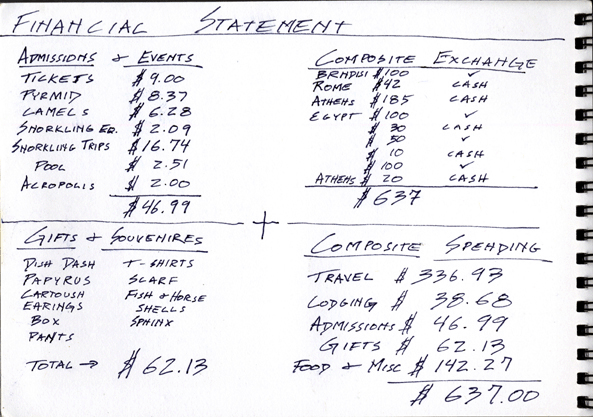 FINANCIAL STATEMENT
ADMISSIONS & EVENTS
TICKETS $ 9.00
PYRMID $ 8.37
CAMELS $ 6.28
SNORKLING EQ. $ 2.09
SNORKLING TRIPS $ 16.74
POOL $ 2.51
ACROPOLIS $ 2.00
$ 46.99
COMPOSITE EXCHANGE
BRNDISI $100 ✓
ROME $42 CASH
ATHENS $185 CASH
EGYPT $100 ✓
$ 30 CASH
$ 50 ✓
$ 10 CASH
$ 100 ✓
ATHENS $ 20 CASH
$ 637
GIFTS & SOUVENIRES
DISH DASH T-SHIRTS
PAPYRUS SCARF
CARTOUSH FISH & HORSE
EARINGS SHELLS
BOX SPHINX
PANTS
TOTAL → $ 62.13
COMPOSITE SPENDING
TRAVEL $ 336.93
LODGING $ 38.68
ADMISSIONS $ 46.99
GIFTS $ 62.13
FOOD & MISC $ 142.27
$ 637.00